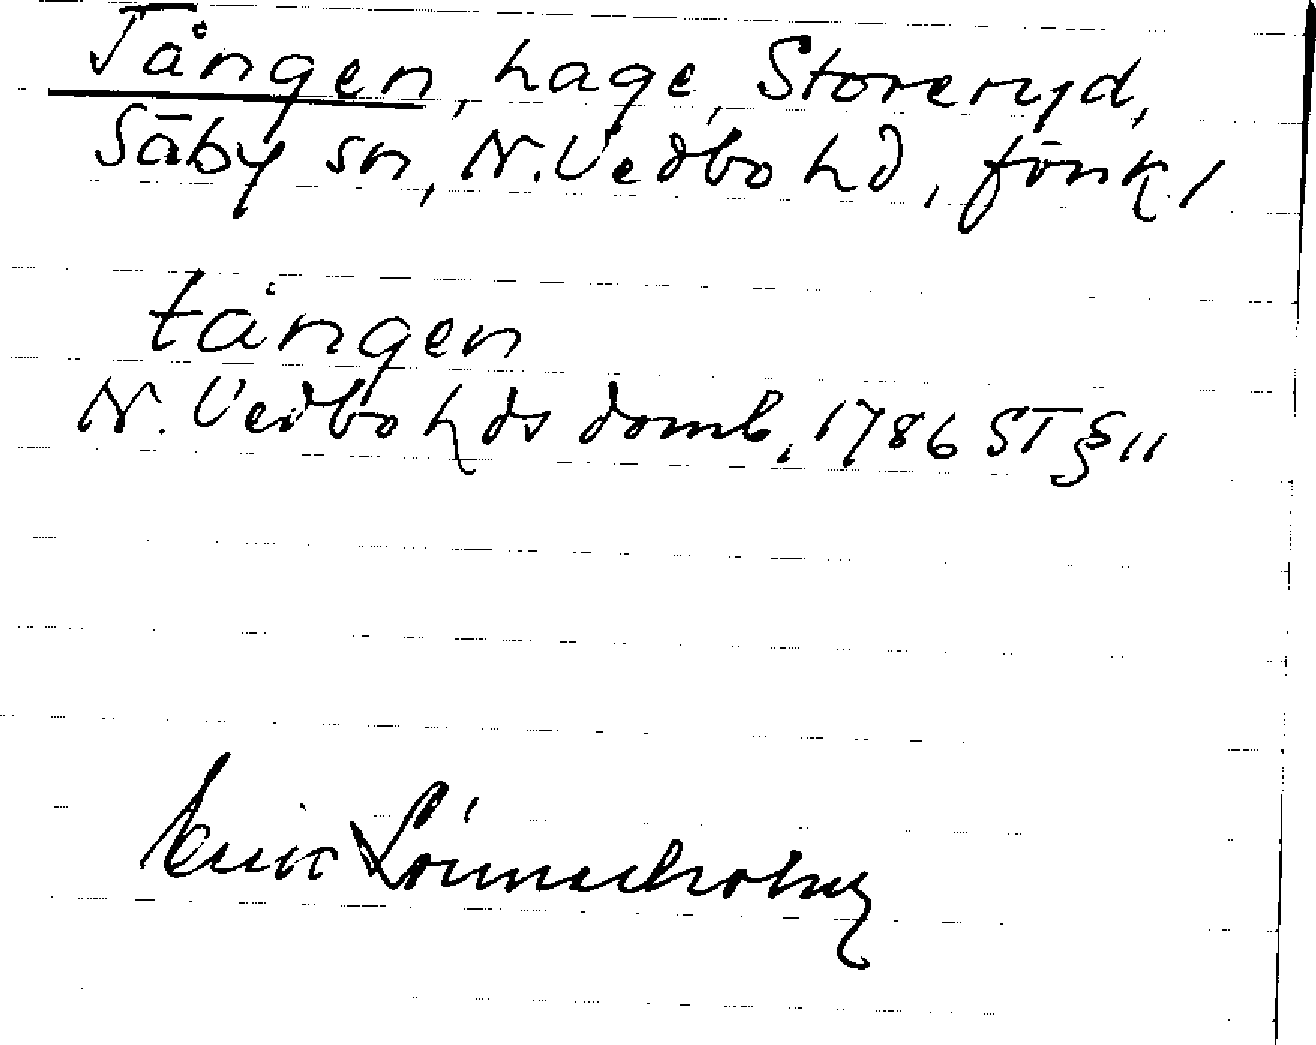 Tången, hage, Storeryd,
Säby sn, N. Vedbo hd, Jönk. l
tången
N. Vedbo hds domb. 1786 ST § 11
Erik